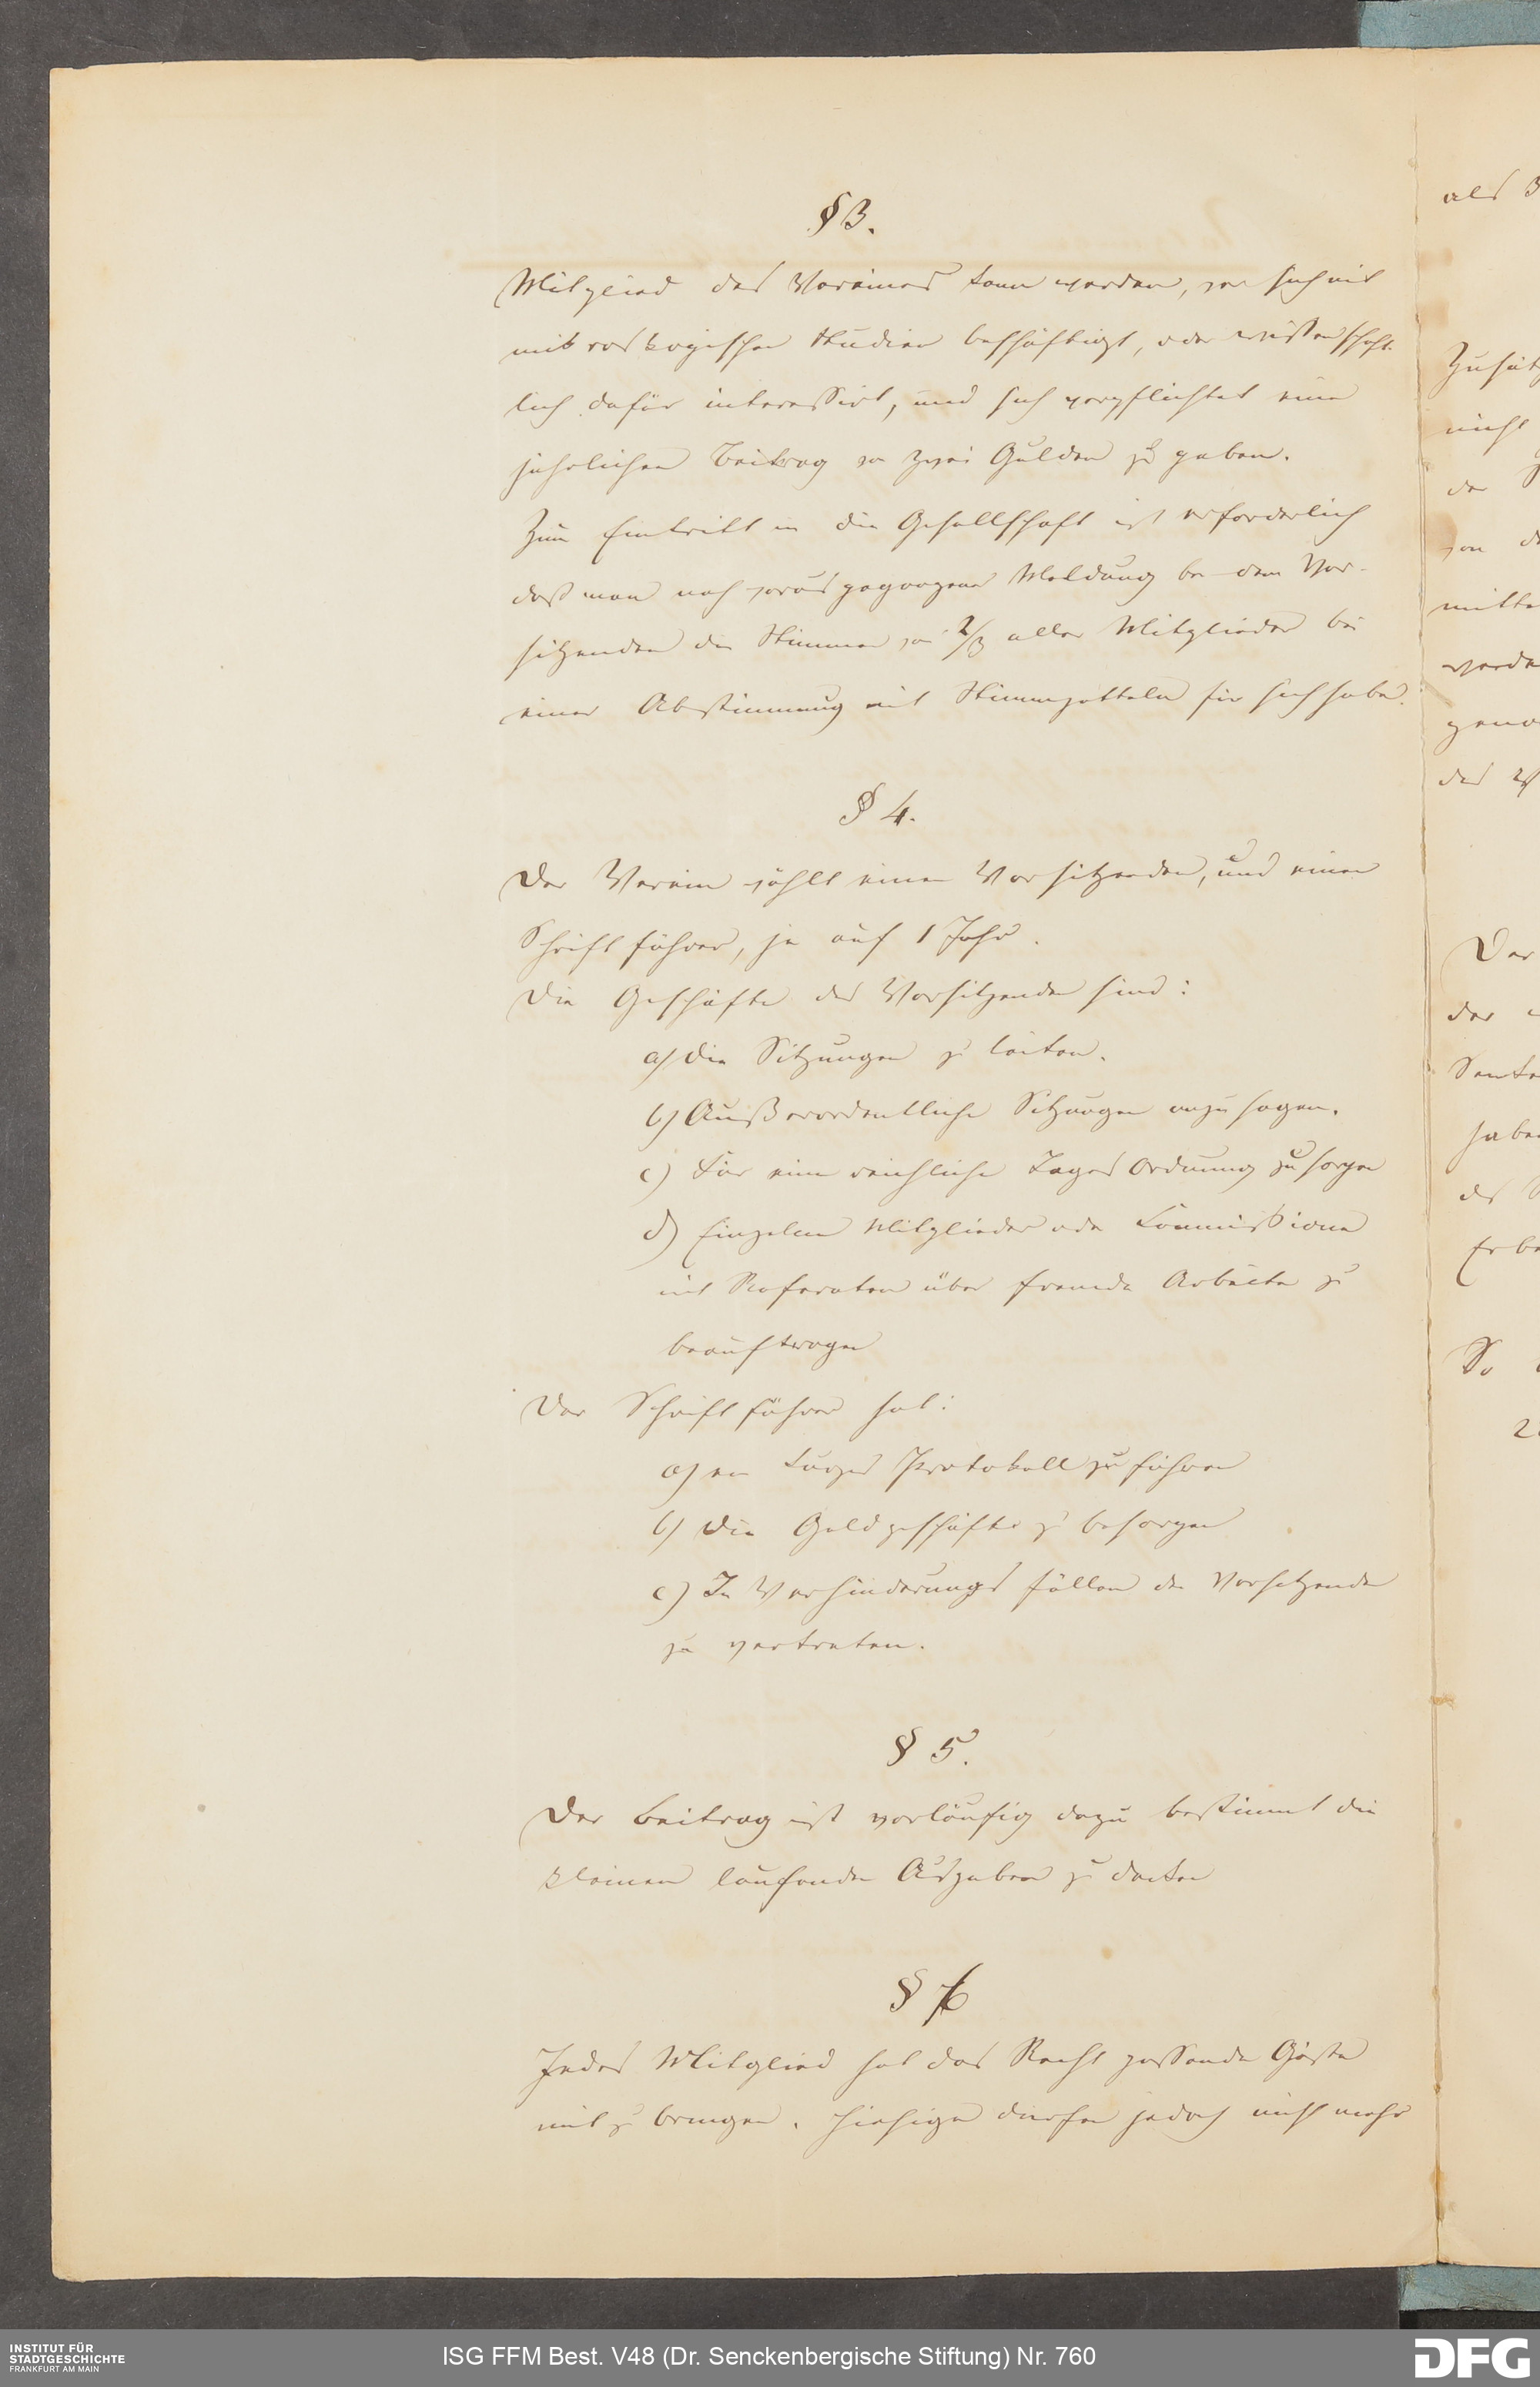 § 3.
Mitglied des Vereines kann werden, wer sich mit
mikroskopischen Studien beschäftigt, oder wissenschaft-
lich dafür interessirt, und sich verpflichtet einen
jährlichen Beitrag von zwei Gulden zu geben.
Zum Eintritt in die Gesellschaft ist erforderlich
daß man nach vorausgegangener Meldung bei dem Vor-
sitzenden die Stimmen von 2/3 aller Mitglieder bei
einer Abstimmung mit Stimmzetteln für sich habe.
§ 4.
Der Verein wählt einen Vorsitzenden, und einen
Schriftführer, je auf 1 Jahr.
Die Geschäfte des Vorsitzenden sind:
a) die Sitzungen zu leiten.
b) Außerordentliche Sitzungen anzusagen.
c) Für eine reichliche Tages Ordnung zu sorgen
d) Einzelne Mitglieder oder Commissionen
mit Referaten über fremde Arbeiten zu
beauftragen
Der Schriftführer hat:
a) ein kurzes Protokoll zu führen
b) die Geldgeschäfte zu besorgen
c) In Verhinderungsfällen den Vorsitzenden
zu vertreten.
§ 5.
Der Beitrag ist vorläufig dazu bestimmt die
kleinen laufenden Ausgaben zu decken
§ 6
Jedes Mitglied hat das Recht passende Gäste
mit zu bringen. Hiesige dürfen jedoch nicht mehr
als
Zusätz
nicht
der
von
mitte
werde
geno
des
Der
der
Senke
haben
des
Erb
So
INSTITUT FÜR
STADTGESCHICHTE
FRANKFURT AM MAIN
ISG FFM Best. V48 (Dr. Senckenbergische Stiftung) Nr. 760
DFG